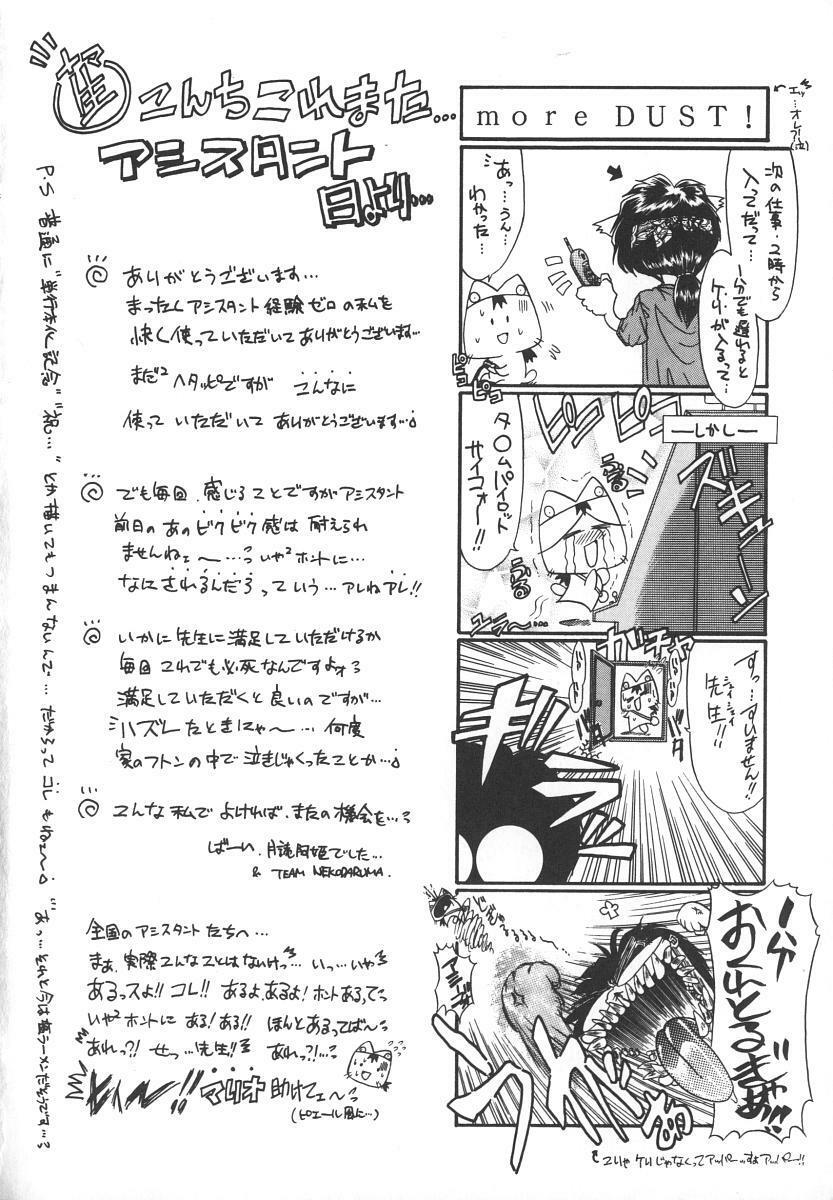 more DUST!
次の仕事、2時から
入ってだって…
1分でも遅れると
ケリが入るって…
あっ…うん…
わかった…
ピコ
ピコ
―しかし―
ズギューン
ピピピピ
タ○ムパイロット
サイコォー!!
ぶる
ぶる
ガチャ
すっ…すいません!!
先生!!
バタ
バタ
ギラギラ
1分
おくれとるぎゃあ!!
こんちこれまた…
アシスタント
日より…
ありがとうございます…
まったくアシスタント経験ゼロの私を
快く使っていただいてありがとうございます…
まだ²ヘタッピですが こんなに
使っていただいて ありがとうございます…
でも毎回、感じることですがアシスタント
前日のあのビクビク感は耐えられ
ませんねェ〜…っいや²ホントに…
なにされるんだろっていう…アレねアレ!!
いかに先生に満足していただけるか
毎回これでも必死なんですよォっ
満足していただくと良いのですが…
ハズレたときにゃ〜…何度
家のフトンの中で泣きじゃくったことか…
こんな私でよければ、またの機会を…っ
ばーい、
& TEAM NEKODARUMA.
全国のアシスタントたちへ…
まぁ、実際こんなことはないけっ…いっ…いや
あるっスよ!! コレ!! あるよ、あるよ! ホントあるってっ
いや²ホントに ある!ある!! ほんとあるってば〜っ
あれっ?! せっ…先生!! あれっ?!…っ
助けてェ〜っ
(ピエール風に…)
P.S 普通に"単行本化記念""祝…"とか描いてもつまんないんで… だからって コレもねェ〜